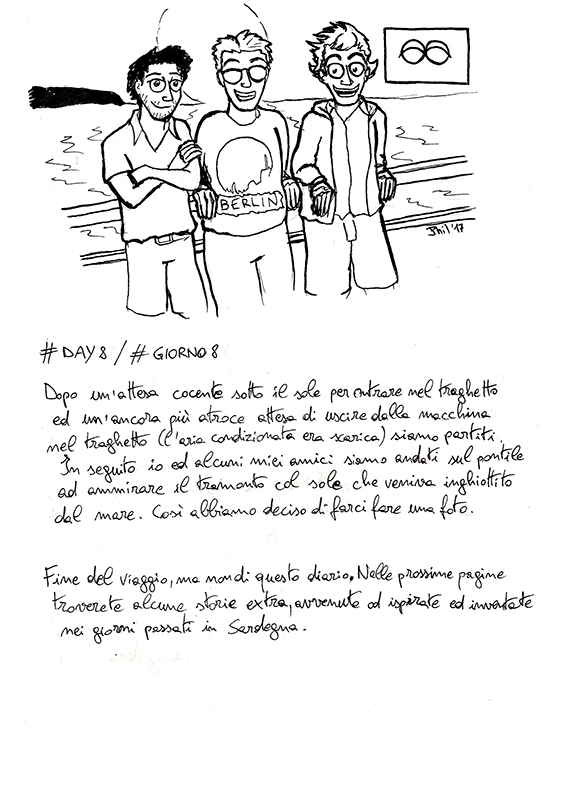 BERLIN
Phil '17
# DAY 8 / # GIORNO 8
Dopo un'attesa cocente sotto il sole per entrare nel traghetto
ed un'ancora più atroce attesa di uscire dalla macchina
nel traghetto (l'aria condizionata era scarica) siamo partiti.
In seguito io ed alcuni miei amici siamo andati sul pontile
ad ammirare il tramonto col sole che veniva inghiottito
dal mare. Così abbiamo deciso di farci fare una foto.
Fine del viaggio, ma non di questo diario. Nelle prossime pagine
troverete alcune storie extra, avvenute od ispirate ed inventate
nei giorni passati in Sardegna.